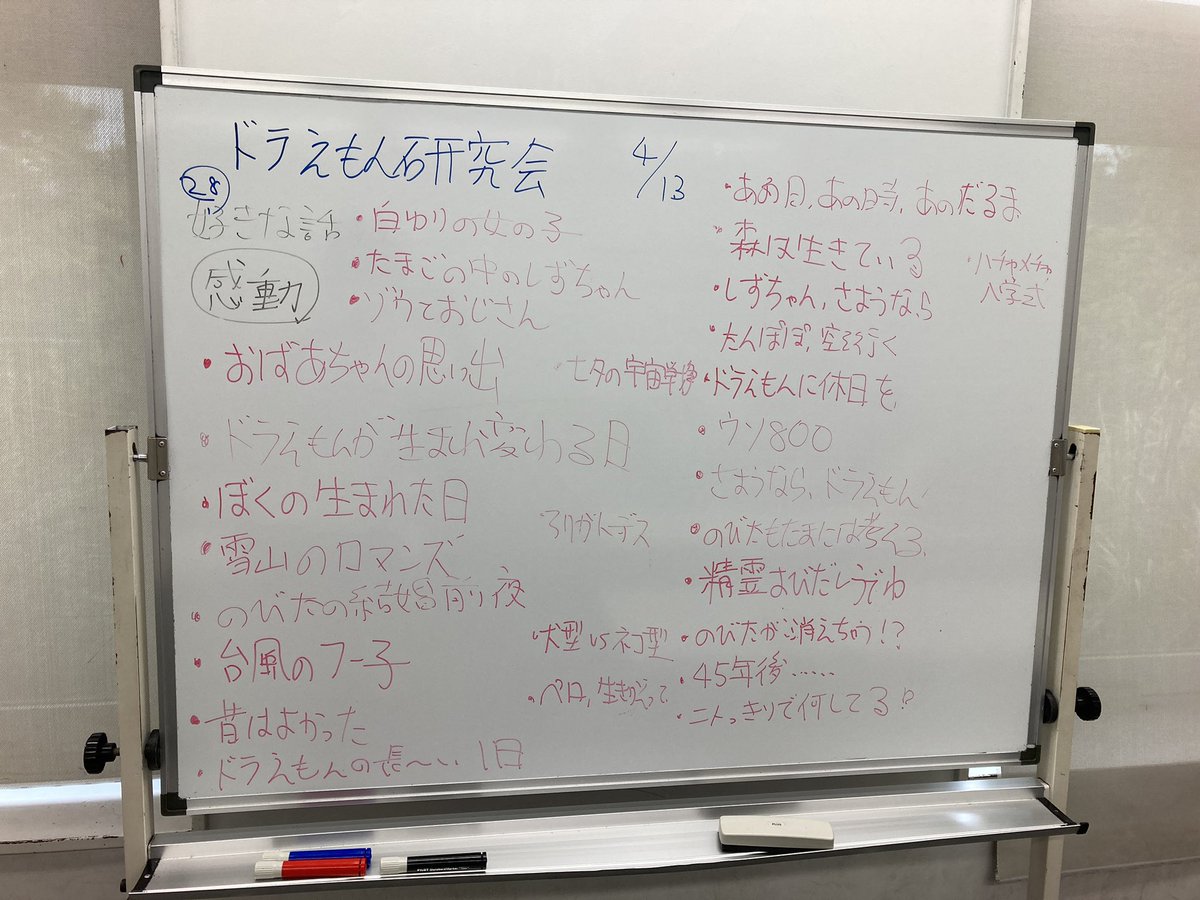 ドラえもん研究会 4/13
28
好きな話
感動
・白ゆりの女の子
・たまごの中のしずちゃん
・ゾウとおじさん
・おばあちゃんの思い出
・ドラえもんが生まれ変わる日
・ぼくの生まれた日
・雪山のロマンス
・のびたの結婚前夜
・台風のフー子
・昔はよかった
・ドラえもんの長〜い1日
七夕の宇宙戦争
ありがトデス
・犬型vsネコ型
・ペロ,生きかえって
・あの日,あの時,あのだるま
・森は生きている
・しずちゃん,さようなら
・たんぽぽ,空を行く
・ドラえもんに休日を
・ウソ800
・さようなら、ドラえもん
・のびたもたまには考える
・精霊よびだしうでわ
・のびたが消えちゃう!?
・45年後……
・二人っきりで何してる?
・ハチャメチャ
入学式